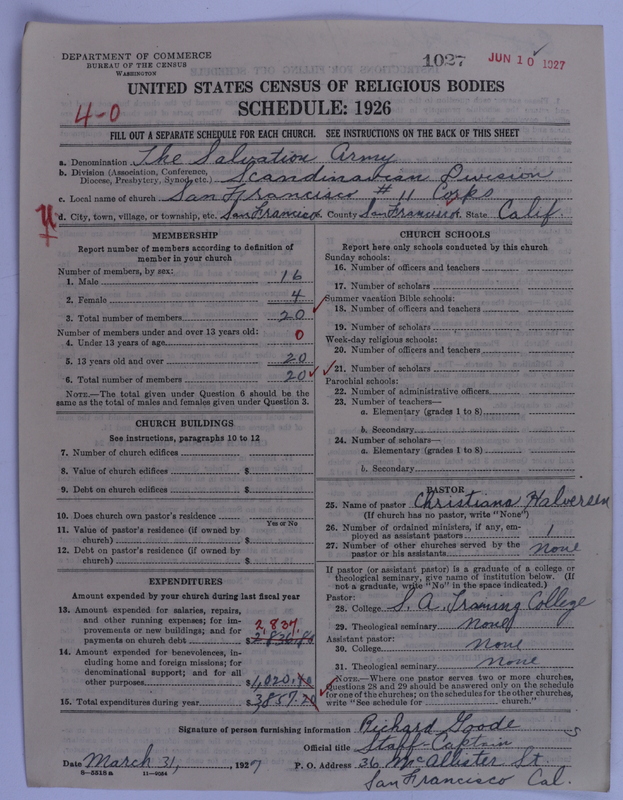 DEPARTMENT OF COMMERCE
BUREAU OF THE CENSUS
WASHINGTON
1027
JUN 10 1927
UNITED STATES CENSUS OF RELIGIOUS BODIES
SCHEDULE: 1926
4-0
FILL OUT A SEPARATE SCHEDULE FOR EACH CHURCH. SEE INSTRUCTIONS ON THE BACK OF THIS SHEET
a. Denomination The Salvation Army
b. Division (Association, Conference, Diocese, Presbytery, Synod, etc.) Scandinavian Division
c. Local name of church San Francisco # 11 Corps
d. City, town, village, or township, etc. San Francisco County San Francisco State Calif.
MEMBERSHIP
Report number of members according to definition of
member in your church
Number of members, by sex:
1. Male 16
2. Female 4
3. Total number of members 20
Number of members under and over 13 years old:
4. Under 13 years of age 0
5. 13 years old and over 20
6. Total number of members 20
NOTE.—The total given under Question 6 should be
same as the total of males and females given under Question 3.
CHURCH BUILDINGS
See instructions, paragraphs 10 to 12
7. Number of church edifices
8. Value of church edifices $
9. Debt on church edifices $
10. Does church own pastor's residence
Yes or No
11. Value of pastor's residence (if owned by
church) $
12. Debt on pastor's residence (if owned by
church) $
EXPENDITURES
Amount expended by your church during last fiscal year
13. Amount expended for salaries, repairs,
and other running expenses; for im-
provements or new buildings; and for 2,837.
payments on church debt $2,836.80
14. Amount expended for benevolences, in-
cluding home and foreign missions; for
denominational support; and for all
other purposes $1,020.40
15. Total expenditures during year $3857.20
CHURCH SCHOOLS
Report here only schools conducted by this church
Sunday schools:
16. Number of officers and teachers
17. Number of scholars
Summer vacation Bible schools:
18. Number of officers and teachers
19. Number of scholars
Week-day religious schools:
20. Number of officers and teachers
21. Number of scholars
Parochial schools:
22. Number of administrative officers
23. Number of teachers—
a. Elementary (grades 1 to 8)
b. Secondary
24. Number of scholars—
a. Elementary (grades 1 to 8)
b. Secondary
PASTOR
25. Name of pastor Christiana Halversen
(If church has no pastor, write "None")
26. Number of ordained ministers, if any, em-
ployed as assistant pastors 1
27. Number of other churches served by the
pastor or his assistants none
If pastor (or assistant pastor) is a graduate of a college or
theological seminary, give name of institution below. (If
not a graduate, write "No" in the space indicated.)
Pastor:
28. College S. A. Training College
29. Theological seminary none
Assistant pastor:
30. College none
31. Theological seminary none
NOTE.—Where one pastor serves two or more churches,
Questions 28 and 29 should be answered only on the schedule
for one of the churches; on the schedules for the other churches,
write "See schedule for church."
Signature of person furnishing information Richard Goode
Official title Staff-Captain
Date March 31, 1927 P. O. Address 36 McAllister St.
San Francisco Cal.
8—5518a 11—9064